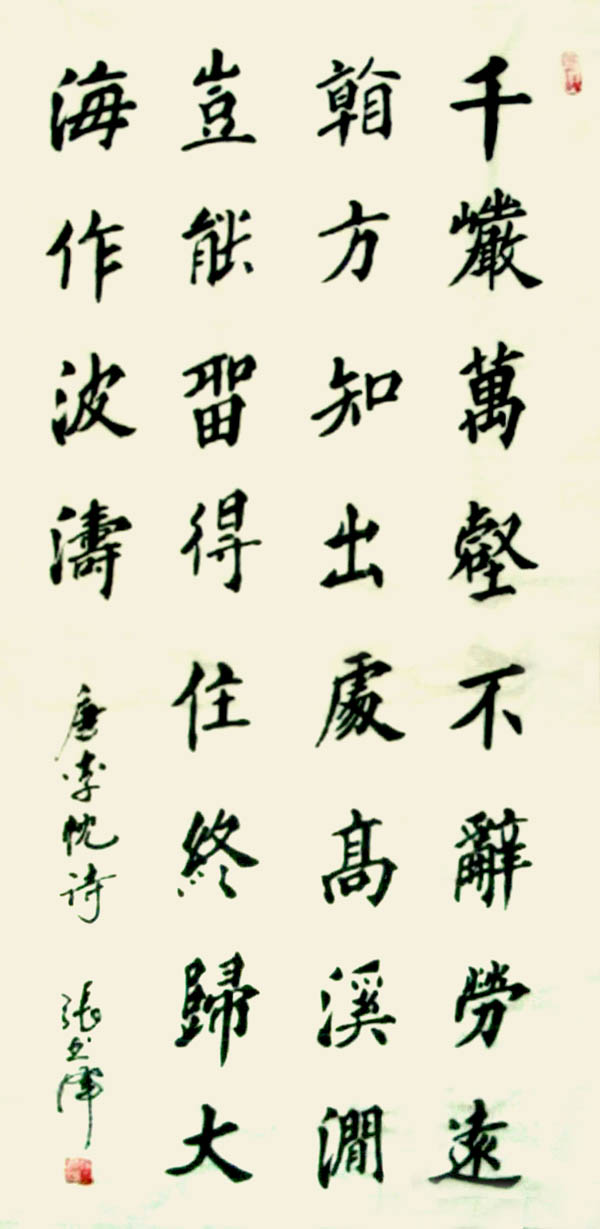 千巖萬壑不辭勞遠
看方知出處高溪澗
豈能留得住終歸大
海作波濤
唐李忱诗 張